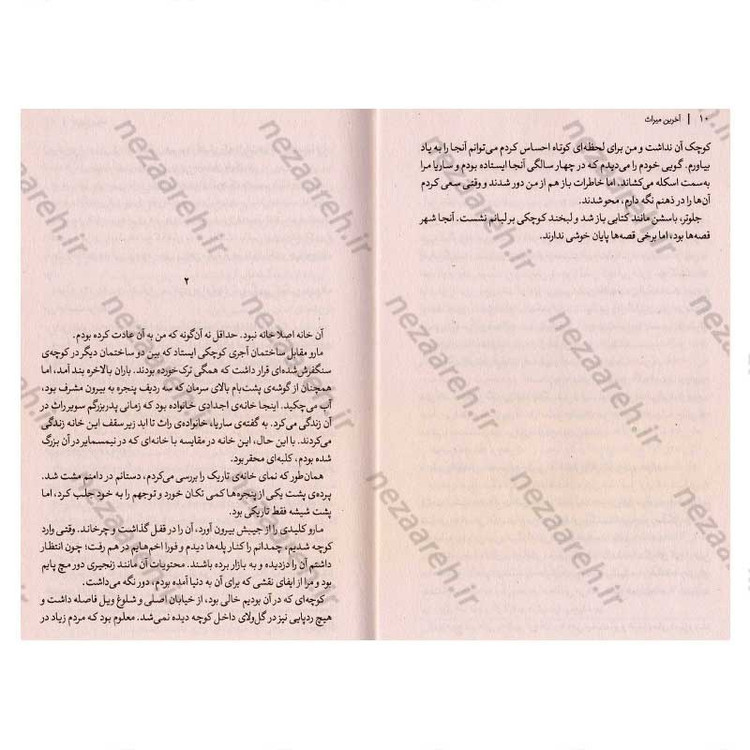 ۱۰ | آخرین میراث
کوچک آن نداشت و من برای لحظه‌ای کوتاه احساس کردم می‌توانم آنجا را به یاد
بیاورم. گویی خودم را می‌دیدم که در چهار سالگی آنجا ایستاده بودم و ساریا مرا
به‌سمت اسکله می‌کشاند. اما خاطرات باز هم از من دور شدند و وقتی سعی کردم
آن‌ها را در ذهنم نگه دارم، محو شدند.
جلوتر، باستشن مانند کتابی باز شد و لبخند کوچکی بر لبانم نشست. آنجا شهر
قصه‌ها بود، اما برخی قصه‌ها پایان خوشی ندارند.
۲
آن خانه اصلا خانه نبود. حداقل نه آن‌گونه که من به آن عادت کرده بودم.
مارو مقابل ساختمان آجری کوچکی ایستاد که بین دو ساختمان دیگر در کوچه‌ی
سنگفرش‌شده‌ای قرار داشت که همگی ترک خورده بودند. باران بالاخره بند آمد، اما
همچنان از گوشه‌ی پشت‌بام بالای سرمان که سه ردیف پنجره به بیرون مشرف بود،
آب می‌چکید. اینجا خانه‌ی اجدادی خانواده بود که زمانی پدربزرگم سویر راث در
آن زندگی می‌کرد. به گفته‌ی ساریا، خانواده‌ی راث تا ابد زیر سقف این خانه زندگی
می‌کردند. با این حال، این خانه در مقایسه با خانه‌ای که در نیمسمایر در آن بزرگ
شده بودم، کلبه‌ای محقر بود.
همان‌طور که نمای خانه‌ی تاریک را بررسی می‌کردم، دستانم در دامنم مشت شد.
پرده‌ی پشت یکی از پنجره‌ها کمی تکان خورد و توجهم را به خود جلب کرد، اما
پشت شیشه فقط تاریکی بود.
مارو کلیدی را از جیبش بیرون آورد، آن را در قفل گذاشت و چرخاند. وقتی وارد
کوچه شدیم، چمدانم را کنار پله‌ها دیدم و فورا اخم‌هایم در هم رفت؛ چون انتظار
داشتم آن را دزدیده و به بازار برده باشند. محتویات آن مانند زنجیری دور مچ پایم
بود و مرا از ایفای نقشی که برای آن به دنیا آمده بودم، دور نگه می‌داشت.
کوچه‌ای که در آن بودیم خالی بود، از خیابان اصلی و شلوغ ویل فاصله داشت و
هیچ ردپایی نیز در گل‌ولای داخل کوچه دیده نمی‌شد. معلوم بود که مردم زیاد در
nezaareh.ir